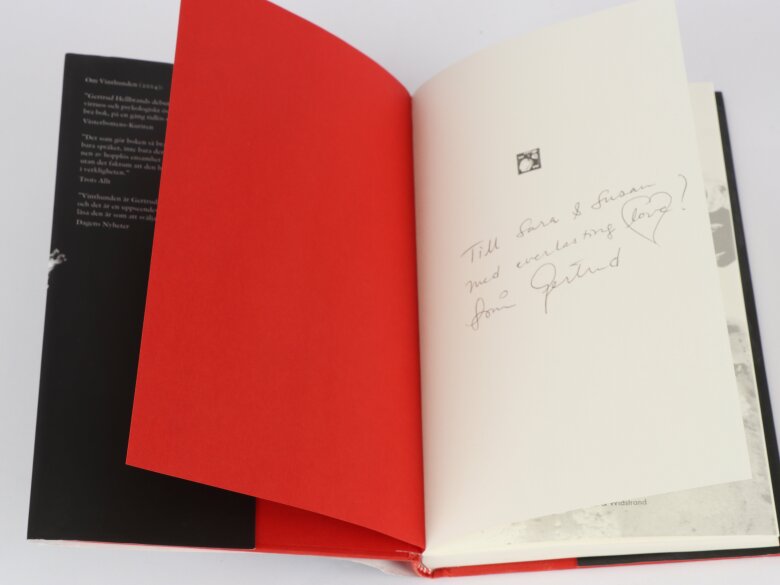 Om Vinthunden (2004):
"Gertrud Hellbrands debut
virtuos och psykologiskt
bra bok, på en gång
Västerbottens-Kuriren
"Det som gör boken så
bara språket, inte bara den
nen av hopplös ensamhet
utan det faktum att den
i verkligheten."
Trots Allt
"Vinthunden är Gertrud
och det är en uppseende
läsa den är som att
Dagens Nyheter
Till Sara & Susan
med everlasting love?
från Gertrud
Widstrand